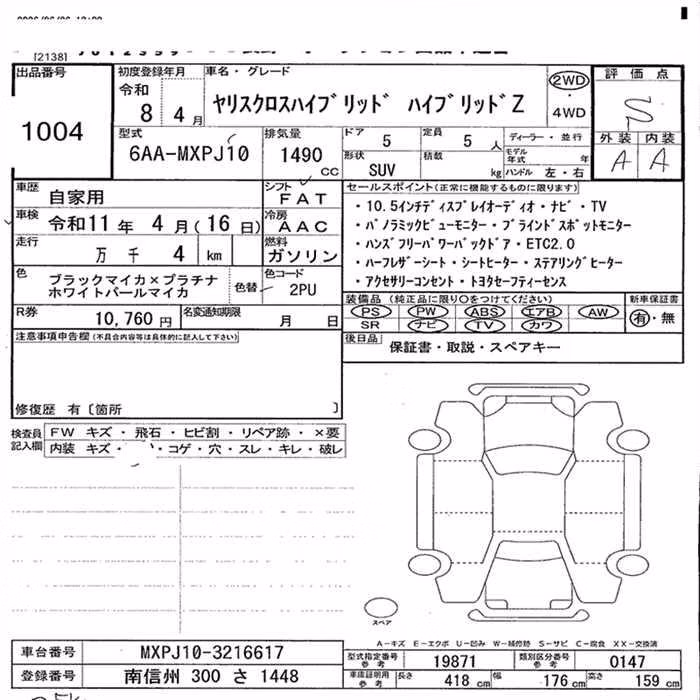 [2138]
出品番号
1004
初度登録年月
令和
8 4 月
車名・グレード
ヤリスクロスハイブリッド ハイブリッドZ
2WD
・
4WD
評価点
S
外装 内装
A A
型式
6AA-MXPJ10
排気量
1490
CC
ドア
5
定員
5 人
ディーラー・並行
モデル年式 年
形状
SUV
積載 kg
ハンドル 左・右
車歴
自家用
シフト
FAT
車検
令和11年 4月(16日)
冷房
AAC
走行
万 千 4 km
燃料
ガソリン
色
ブラックマイカ×プラチナ
ホワイトパールマイカ
色替
色コード
2PU
R券
10,760 円
名変通知期限
月 日
セールスポイント(正常に機能するものに限ります)
・10.5インチディスプレイオーディオ・ナビ・TV
・パノラミックビューモニター・ブラインドスポットモニター
・ハンズフリーパワーバックドア・ETC2.0
・ハーフレザーシート・シートヒーター・ステアリングヒーター
・アクセサリーコンセント・トヨタセーフティーセンス
装備品 (純正品に限り○をつけてください)
PS PW ABS エアB AW
SR ナビ TV カワ
新車保証書
有・無
後日品
保証書・取説・スペアキー
注意事項申告欄(不具合内容等は具体的に記入して下さい)
修復歴 有〔箇所 〕
検査員
記入欄
FW キズ・飛石・ヒビ割・リペア跡・×要
内装 キズ・ ・コゲ・穴・スレ・キレ・破レ
スペア
A-キズ E-エクボ U-凹み W-補修跡 S-サビ C-腐食 XX-交換済
車台番号
MXPJ10-3216617
登録番号
南信州 300 さ 1448
型式指定番号
参考
19871
類別区分番号
参考
0147
車庫証明用
参考
長さ
418 cm
幅
176 cm
高さ
159 cm